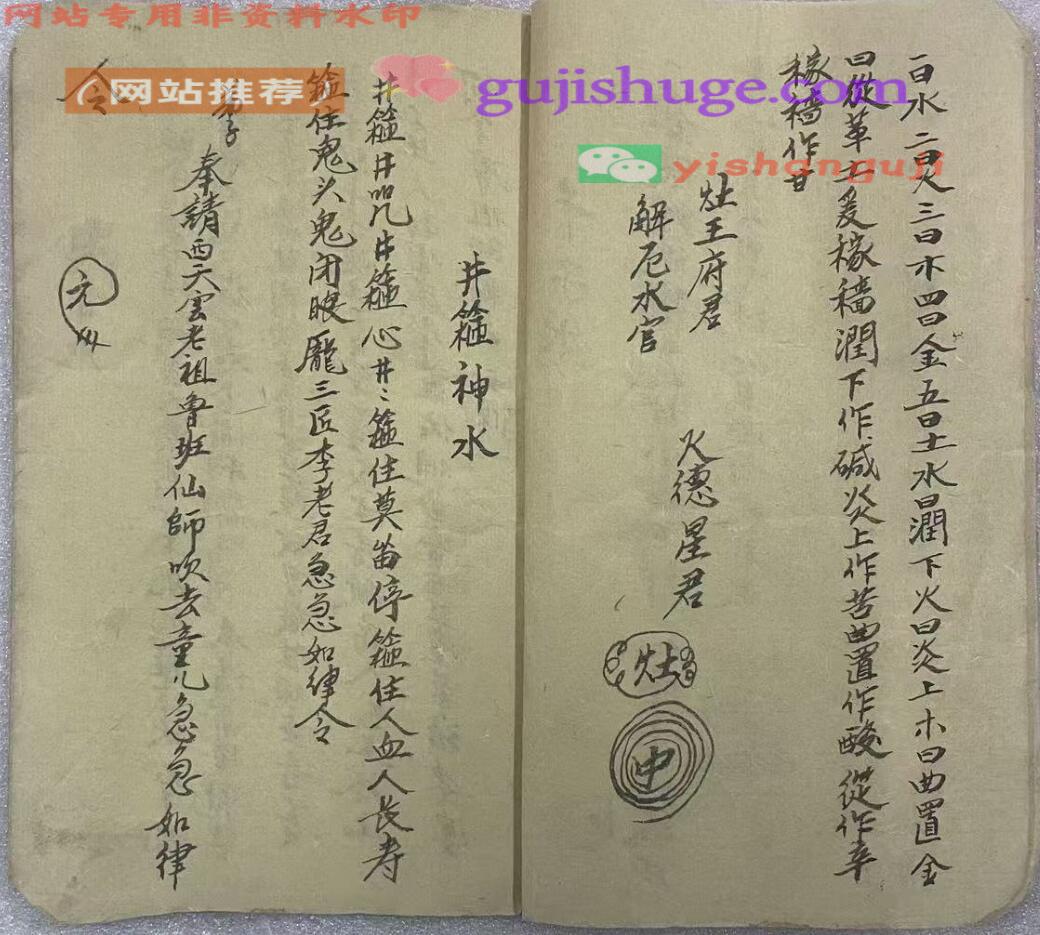 网站专用非资料水印
网站推荐
gujishuge.com
yishanguji
一曰水二曰火三曰木四曰金五曰土水曰潤下火曰炎上木曰曲置金
曰從革土爰稼穡潤下作碱炎上作苦曲置作酸從作辛
稼穡作甘
灶王府君
解厄水官
火德星君
灶
中
井箍神水
井箍井咒井箍心井〻箍住莫畄停箍住人血人長寿
箍住鬼头鬼闭眼龐三匠李老君急急如律令
奉請西天雲老祖鲁班仙師吹去童儿急急如律
令
元